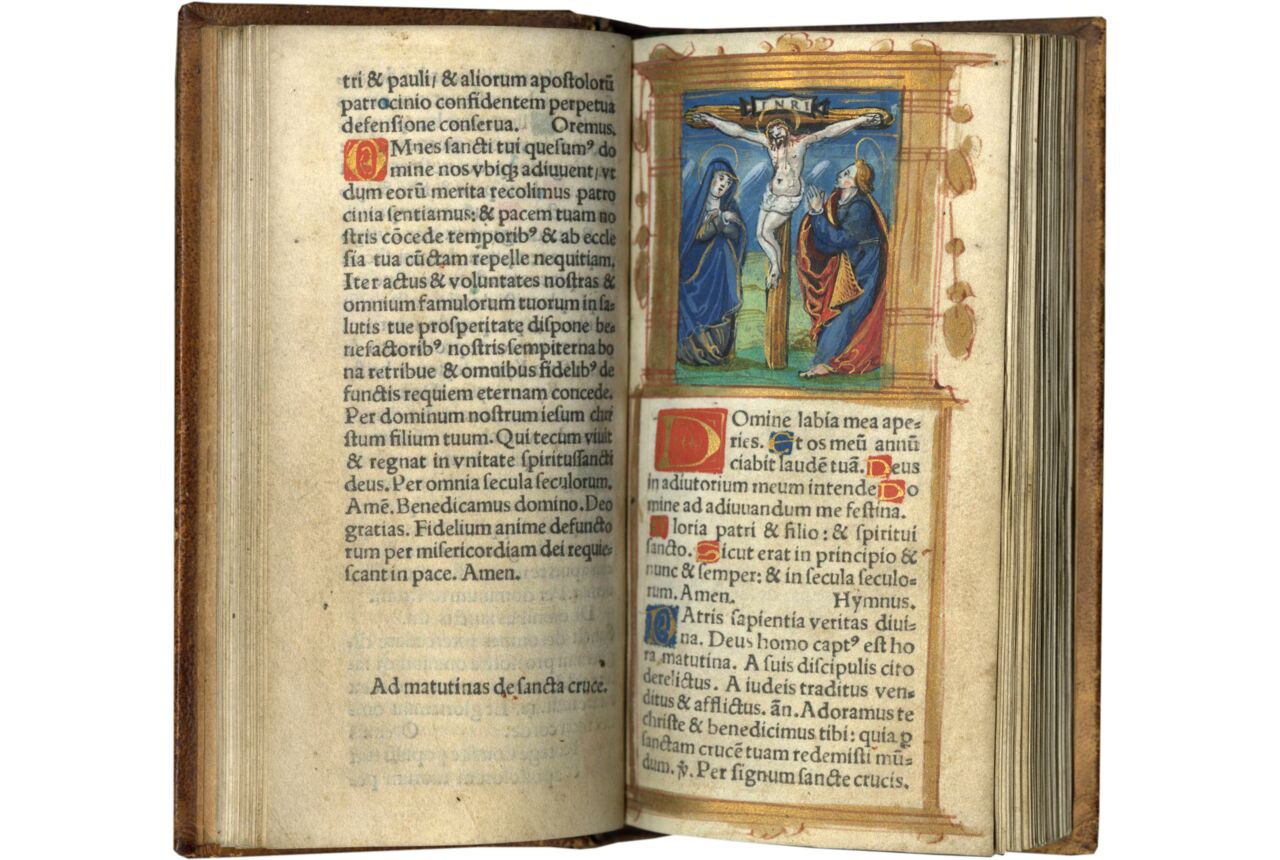 tri & pauli/ & aliorum apoſtolorū
patrocinio confidentem perpetua
defenſione conſerua. Oremus.
OMnes ſancti tui queſumꝰ do
mine nos vbiqꝫ adiuuent/vt
dum eorū merita recolimus patro
cinia ſentiamus: & pacem tuam no
ſtris cōcede temporibꝰ & ab eccle
ſia tua cūctam repelle nequitiam.
Iter actus & voluntates noſtras &
omnium famulorum tuorum in ſa⸗
lutis tue proſperitate diſpone be⸗
nefactoribꝰ noſtris ſempiterna bo
na retribue & omnibus fidelibꝰ de
functis requiem eternam concede.
Per dominum noſtrum ieſum chri
ſtum filium tuum. Qui tecum viuit
& regnat in vnitate ſpirituſſancti
deus. Per omnia ſecula ſeculorum.
Amē. Benedicamus domino. Deo
gratias. Fidelium anime defuncto
rum per miſericordiam dei requie⸗
ſcant in pace. Amen.
Ad matutinas de ſancta cruce.
INRI
DOmine labia mea ape⸗
ries. Et os meū annū
ciabit laudē tuā. Deus
in adiutorium meum intende Do
mine ad adiuuandum me feſtina.
Gloria patri & filio: & ſpiritui
ſancto. Sicut erat in principio &
nunc & ſemper: & in ſecula ſeculo⸗
rum. Amen. Hymnus.
PAtris ſapientia veritas diui⸗
na. Deus homo captꝰ eſt ho
ra matutina. A ſuis diſcipulis cito
derelictus. A iudeis traditus ven⸗
ditus & afflictus. ān. Adoramus te
chriſte & benedicimus tibi: quia ꝑ
ſanctam crucē tuam redemiſti mū⸗
dum. ℣. Per ſignum ſancte crucis.